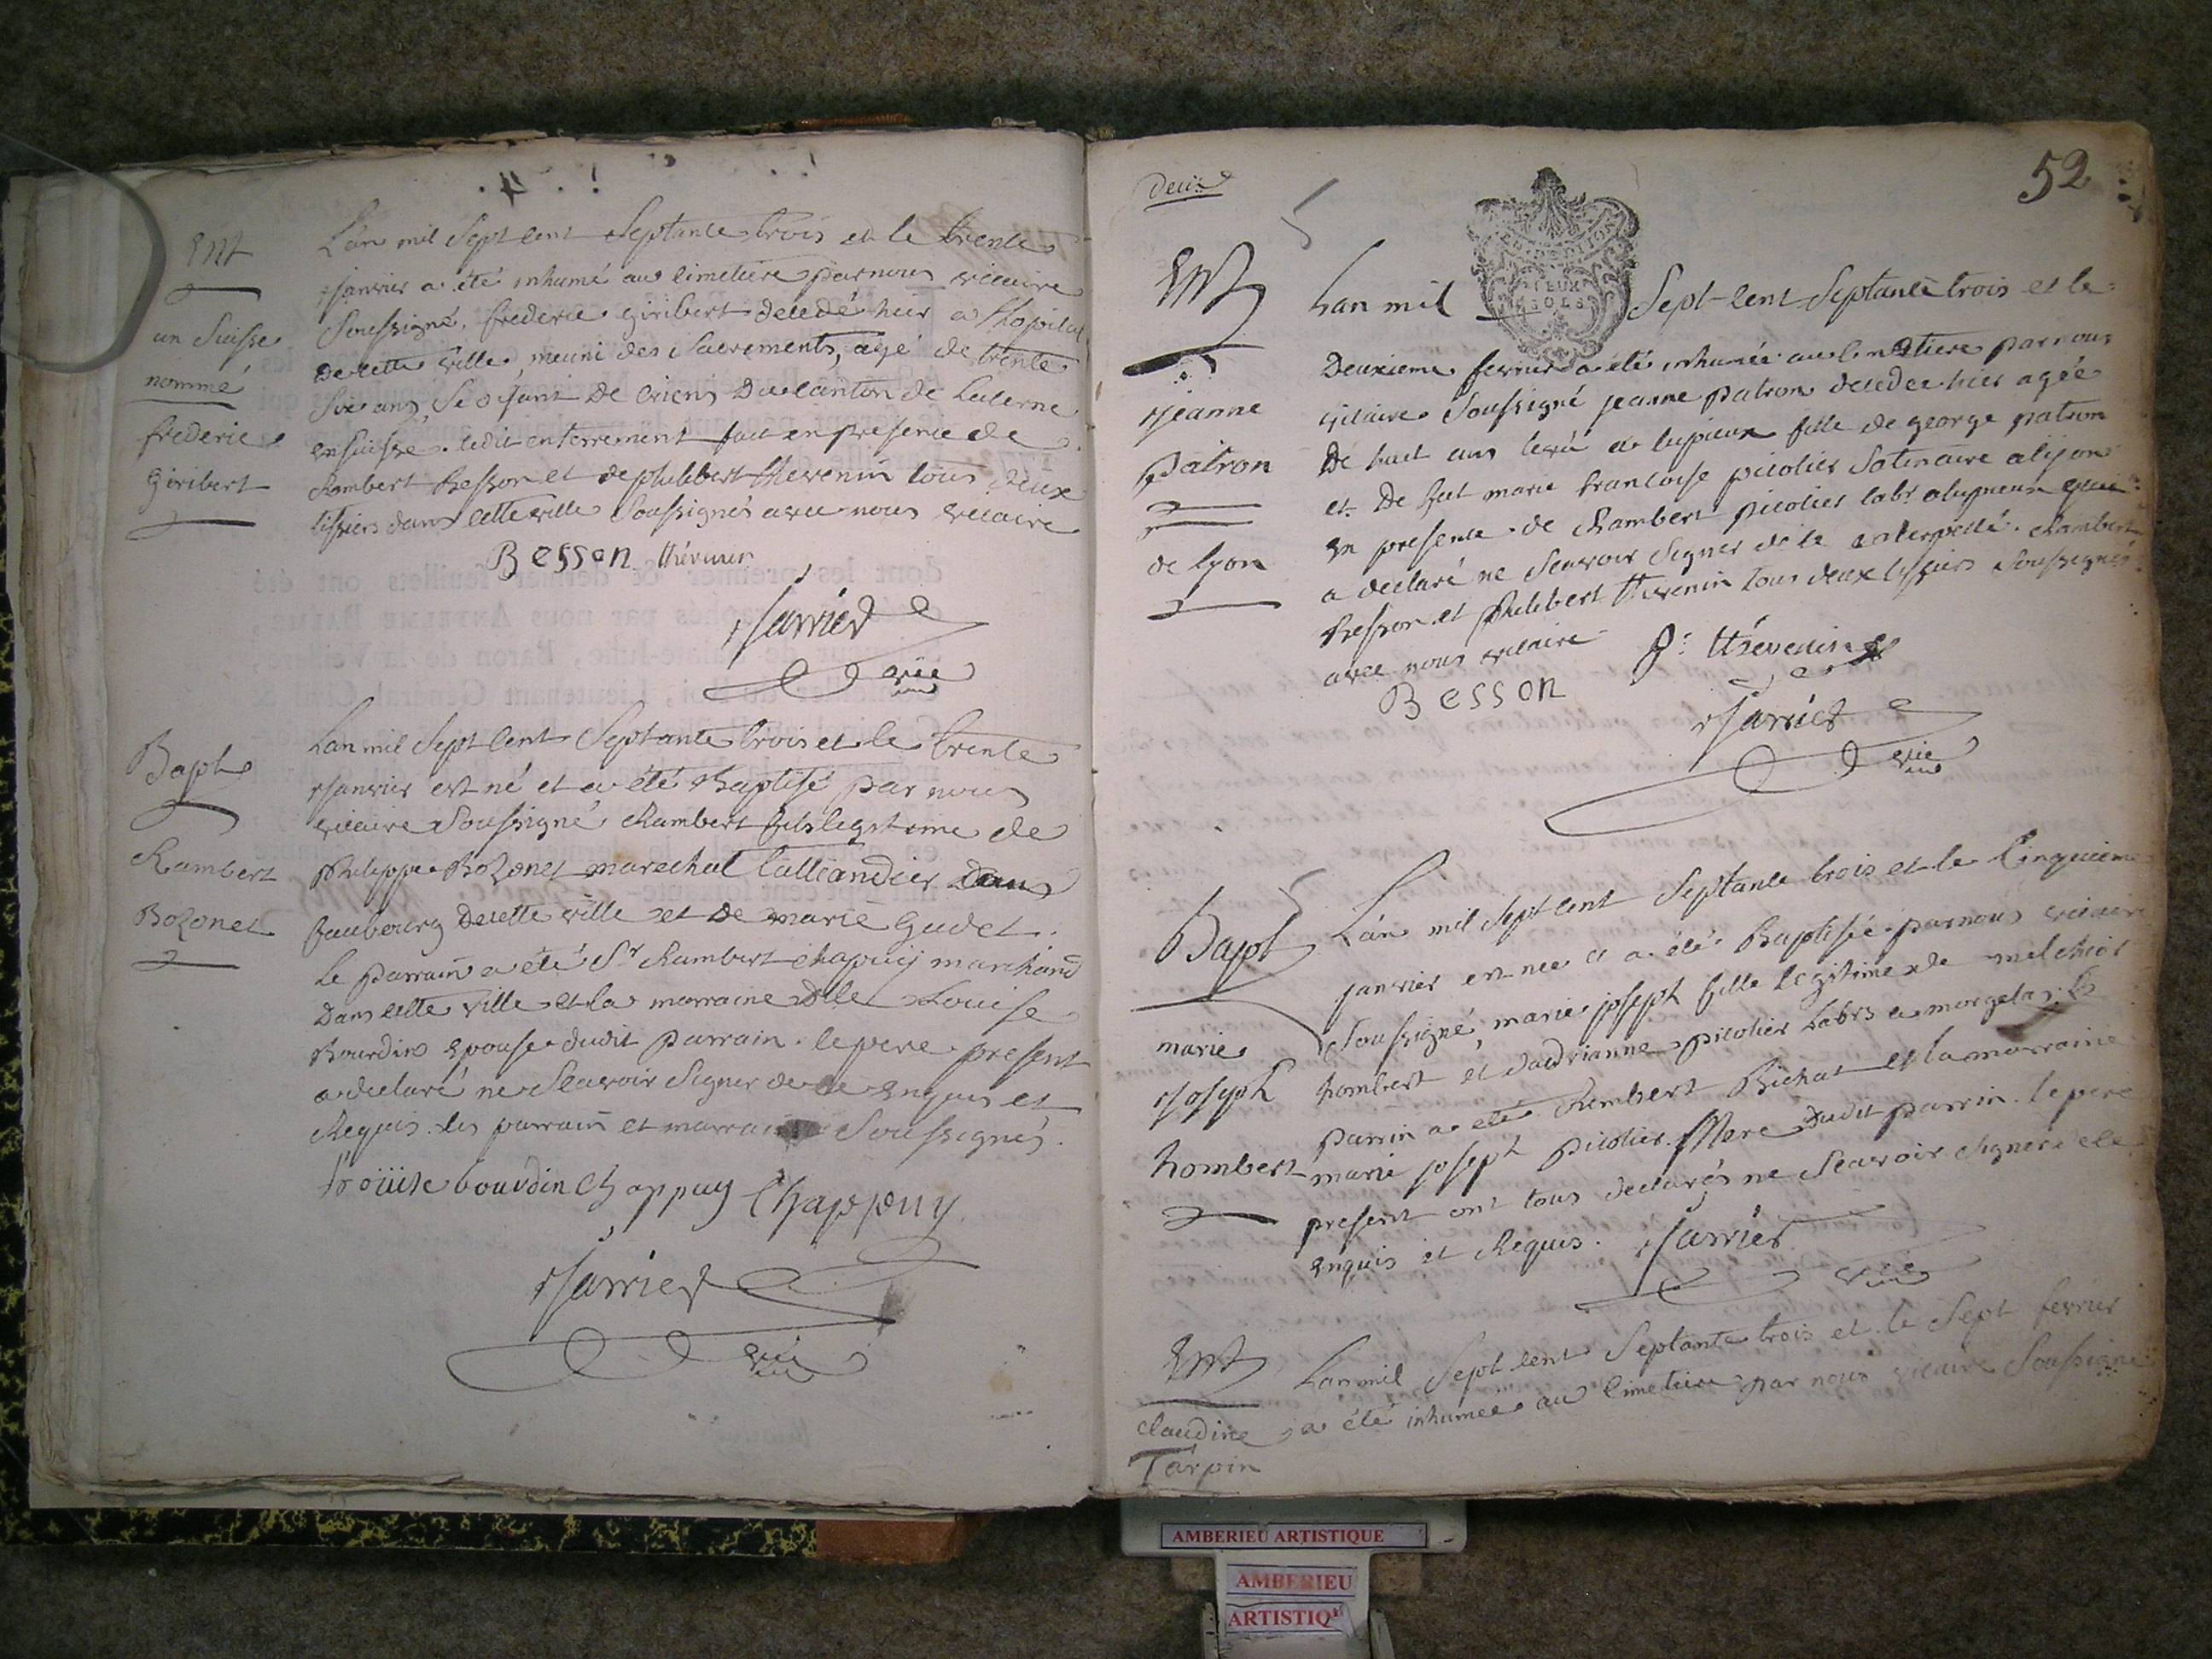 Ent
un Suisse
nommé
frederic
Giribert
L'an mil Sept cent Septante trois et le trente
Janvier a été inhumé au cimetiere par nous vicaire
Soussigné, frederic giribert decedé hier a l'hopital
de cette ville, meuni des Sacrements, agé de trente
Six ans, Se disant de criens du canton de Lucerne
en Suisse. ledit enterrement fait en presence de
Rambert Besson et de philibert thevenin tous deux
tissiers dans cette ville Soussignés avec nous vicaire
Besson thévenin
Jarrier
vic
Bapt
Rambert
Bozonet
Lan mil Sept cent Septante trois et le trente
Janvier est né et a été Baptisé par nous
vicaire Soussigné Rambert fils legitime de
Philippe Bozonet marechal talliandier dans
faubourg de cette ville et de marie Gudet.
Le parrain a été Sr Rambert chapuy marchand
dans cette ville et la marraine dlle Louise
Bourdin epouse dudit parrain. le pere present
a declaré ne Scavoir Signer de ce enquis et
Requis. les parrain et marraine Soussignés.
Loüise bourdin Chappuy Chappuy
Jarrier
vic
deux
52
Ent
Jeanne
patron
de lyon
Lan mil Sept-cent Septante trois et le
Deuxieme fevrier a été inhumée au cimetiere par nous
vicaire Soussigné jeanne patron decedée hier agée
de huit ans a lupieux fille de george patron
et de fut marie francoise picolier Satinaire a lijon
en presence de Rambert picolier labr a lupieux qui
a declaré ne Scavoir Signer de ce enterpellé. Rambert
Besson et philibert thevenin tous deux tissiers Soussignés
avec nous vicaire
Besson
p. thévenin
Jarrier
vic
Bapt
marie
Joseph
hombert
L'an mil Sept cent Septante trois et le Cinquieme
janvier est nee et a été Baptisée par nous vicaire
Soussigné, marie joseph fille legitime de melchior
hombert et dadrianne picolier Labrs a morgelas. le
parrin a été Rembert Bichat et la marraine
marie joseph picolier Mere dudit parrin. le pere
present ont tous declarés ne Scavoir Signer de ce
enquis et Requis.
Jarrier
vic
Ent
claudine
Tarpin
Lan mil Sept cent Septante trois et le Sept fevrier
a été inhumee au Cimetiere par nous vicaire Soussigné
AMBERIEU ARTISTIQUE
AMBERIEU
ARTISTIQ